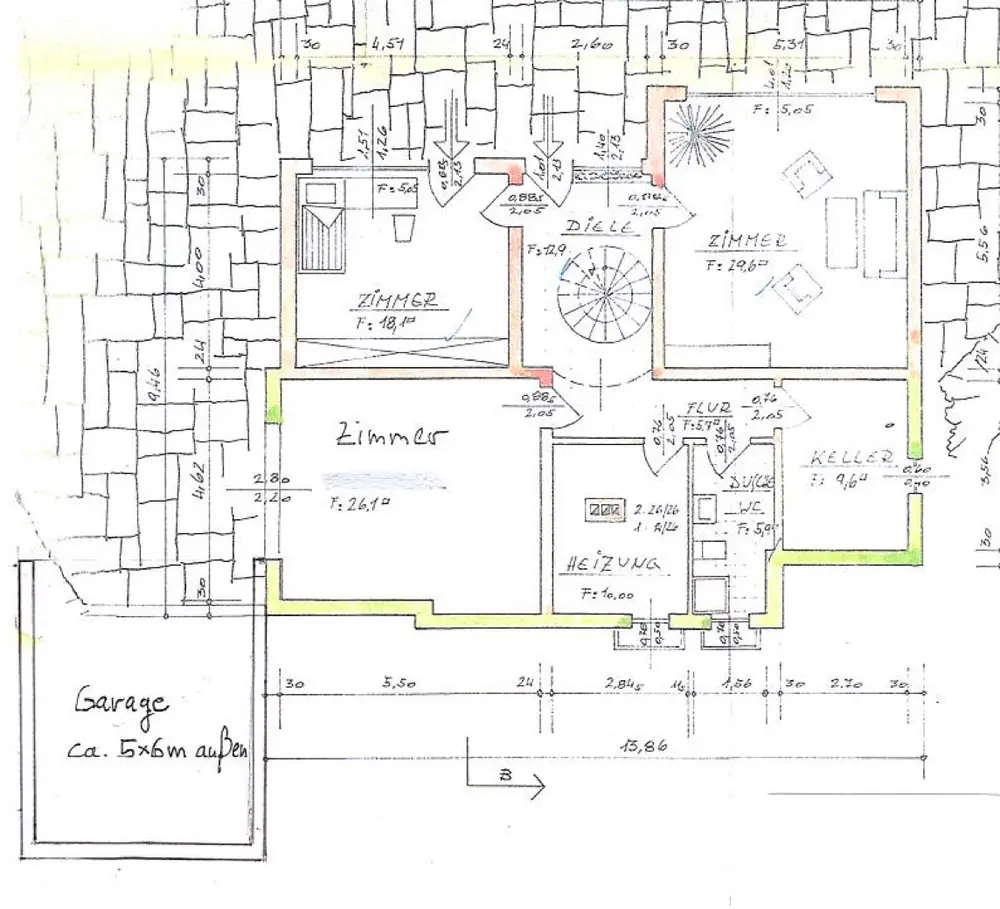 30 4,51 24 2,60 30 5,31 30
1,51
1,26
0,885
2,13
1,01
2,13
1,40
2,13
F: 5,05
30
F: 5,05
0,885
2,05
2,05
DIELE
F: 12,9
ZIMMER
F: 29,6
30
4,00
ZIMMER
F: 18,1
5,56
24
24
9,46
0,885
2,05
FLUR
F: 5,7
0,76
2,05
0,76
2,05
0,76
2,05
Zimmer
F: 26,1
2,80
2,20
4,62
KELLER
F: 9,6
0,60
3,56
DUSCHE
WC
F: 5,9
2. 26/26
HEIZUNG
F: 10,00
30
30
0,70
0,50
0,70
0,50
30 5,50 24 2,845 1,56 30 2.70 30
Garage
ca. 5x6m außen
13,86
B